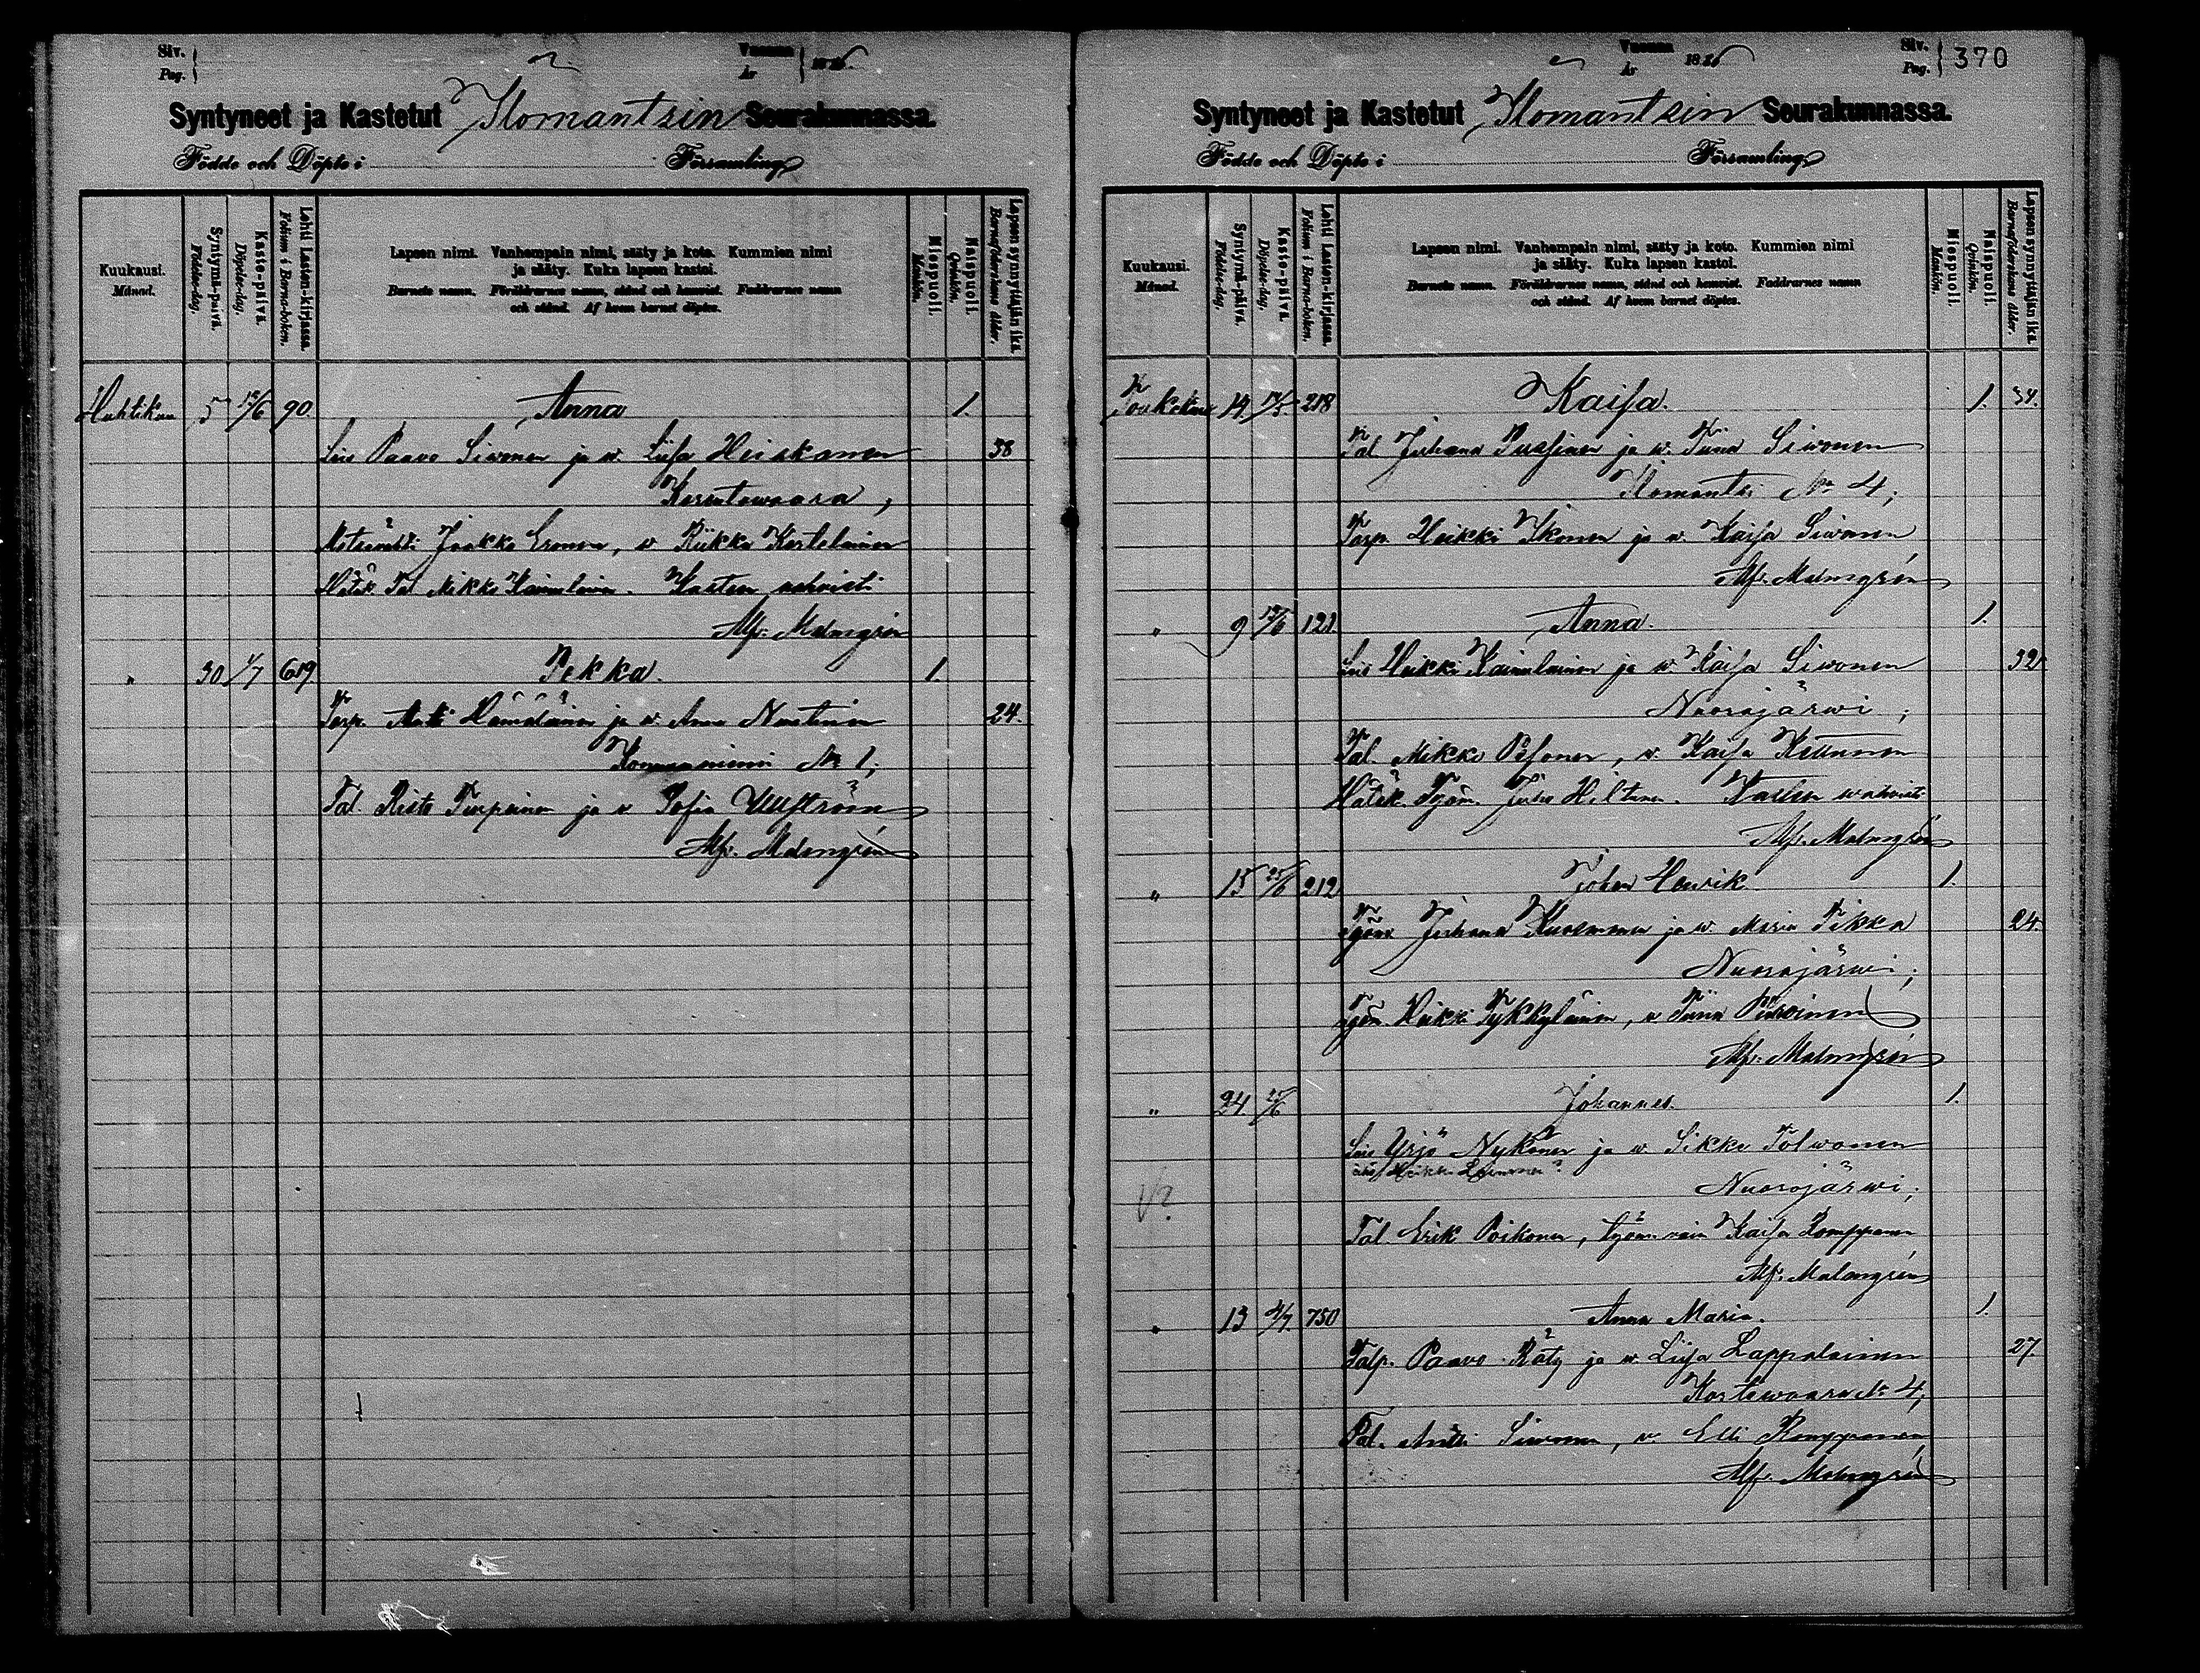 Siv.
Pag.
Vuonna
År 18
Syntyneet ja Kastetut Ilomantsin Seurakunnassa.
Födde och Döpte i Församling
Kuukausi.
Månad.
Syntymä-päivä.
Födelse-dag.
Kasto-päivä.
Döpelse-dag.
Lehti Lasten-kirjassa.
Folium i Barna-boken.
Lapsen nimi. Vanhempain nimi, sääty ja koto. Kummien nimi
ja sääty. Kuka lapsen kastoi.
Barnets namn. Föräldrarnes namn, stånd och hemvist. Faddrarnes namn
och stånd. Af hvem barnet döptes.
Miespuoli.
Mankön.
Naispuoli.
Qvinkön.
Lapsen synnyttäjän ikä.
Barnaföderskans ålder.
Huhtikuu 5 12/6 90 Anna 1.
Lois Paavo Siwonen ja w. Liisa Heiskanen 38
Korentowaara,
Jaakko Eronen, w Riikka Kortelainen
Hätäk. Tal Mikko Kaimulainen. Kasteen wahvisti
Alfr. Malmgrén
" 30 1/7 619 Pekka. 1.
Torp. Antti Hämäläinen ja w. Anna Nuutinen 24.
No 1,
Tal. Risto Turpeinen ja w Sofia
Alfr. Malmgrén
Vuonna
År 18
Siv.
Pag. 370
Syntyneet ja Kastetut Ilomantsin Seurakunnassa.
Födde och Döpte i Församling
Kuukausi.
Månad.
Syntymä-päivä.
Födelse-dag.
Kasto-päivä.
Döpelse-dag.
Lehti Lasten-kirjassa.
Folium i Barna-boken.
Lapsen nimi. Vanhempain nimi, sääty ja koto. Kummien nimi
ja sääty. Kuka lapsen kastoi.
Barnets namn. Föräldrarnes namn, stånd och hemvist. Faddrarnes namn
och stånd. Af hvem barnet döptes.
Miespuoli.
Mankön.
Naispuoli.
Qvinkön.
Lapsen synnyttäjän ikä.
Barnaföderskans ålder.
Toukokuu 14. 218 Kaisa. 1. 34.
Tal Juhana Pussinen ja w. Tiina Siwonen
Ilomantsi No 4;
Torp. Heikki Ikonen ja w. Kaisa Siwonen
Alfr. Malmgrén
" 9 12/6 123 Anna. 1.
Lois Heikki Kaimulainen ja w. Kaisa Siwonen 32
Nuorajärwi;
Tal. Mikko Pesonen, w. Kaisa Kettunen
Hätäk. Työm. Juho Hiltunen. Kasteen wahvisti
Alfr. Malmgrén
" 15. 25/6 212 Johan Henrik 1.
Työm Juhana Kuosmanen ja w. Maria Tikka 24.
Nuorajärwi;
Työm. Heikki Tykkyläinen, w Tiina Parwinen
Alfr. Malmgrén
" 24 25/6 Johannes. 1.
Lois Yrjö Nykänen ja w. Sikke Tolwanen
Heikki
Nuorajärwi;
Tal. Erik Poikonen, työm. vaim Kaisa Romppanen
Alfr. Malmgrén
" 13 750 Anna Maria. 1.
Talp. Paavo Räty ja w. Liisa Lappalainen 27.
Kortewaara No 4,
Tal. Antti Siwonen, w. Elli Romppanen
Alfr. Malmgrén